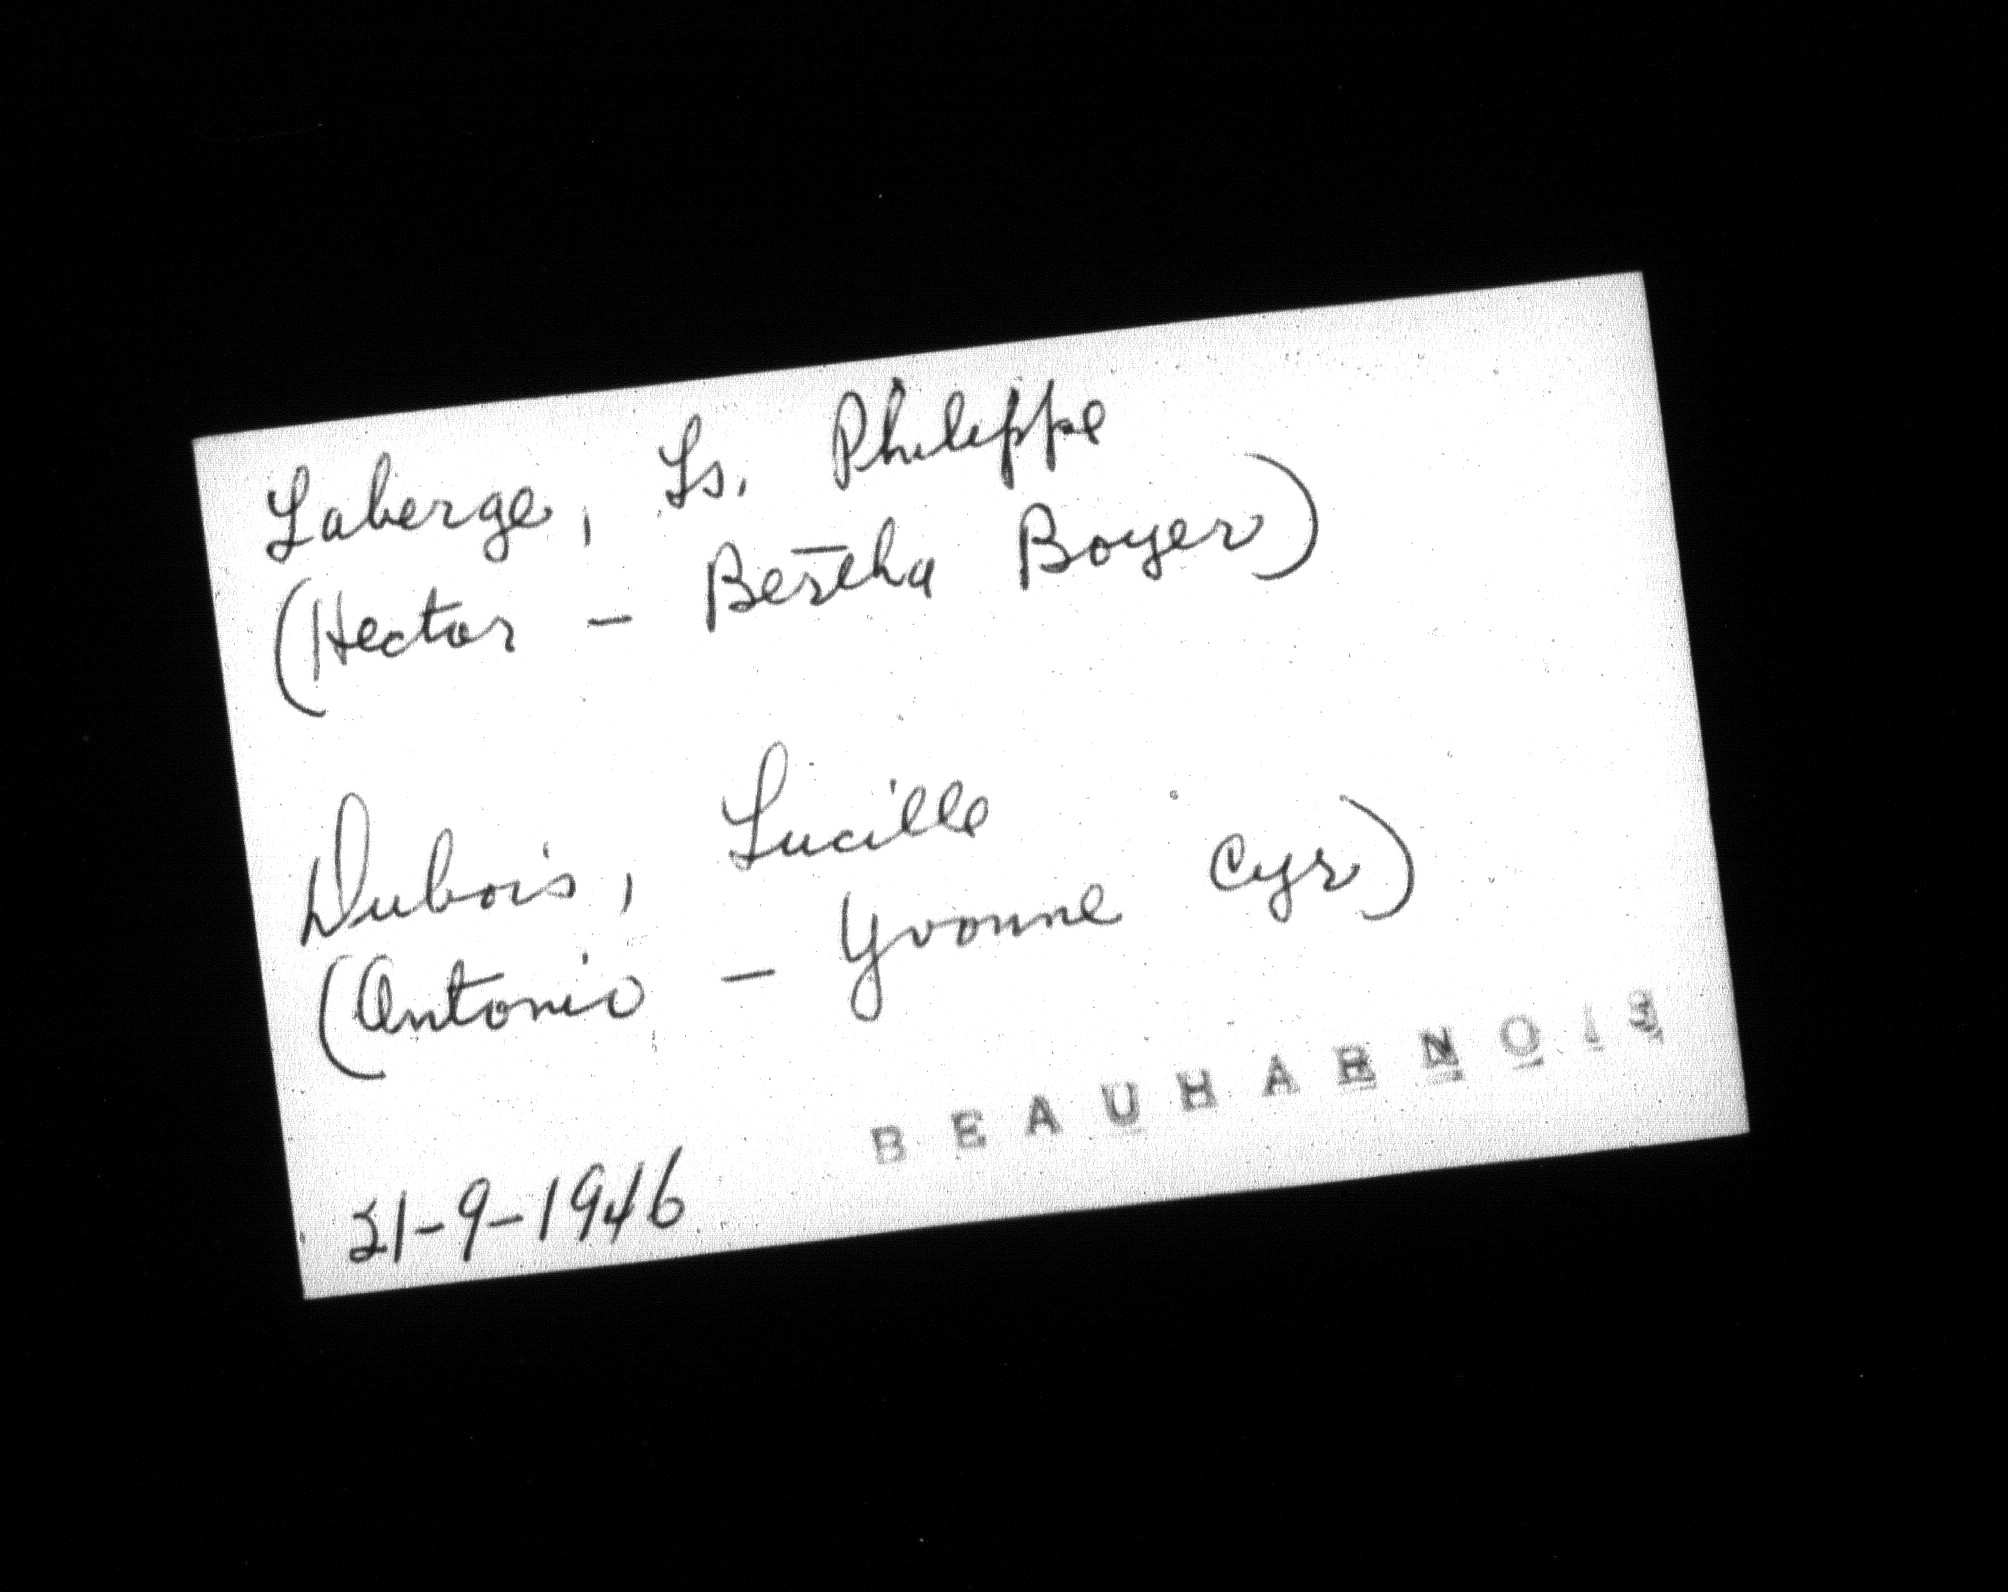 Laberge, Ls. Philippe
(Hector - Bertha Boyer)
Dubois, Lucille
(Antonio - Yvonne Cyr)
21-9-1946
BEAUHARNOIS